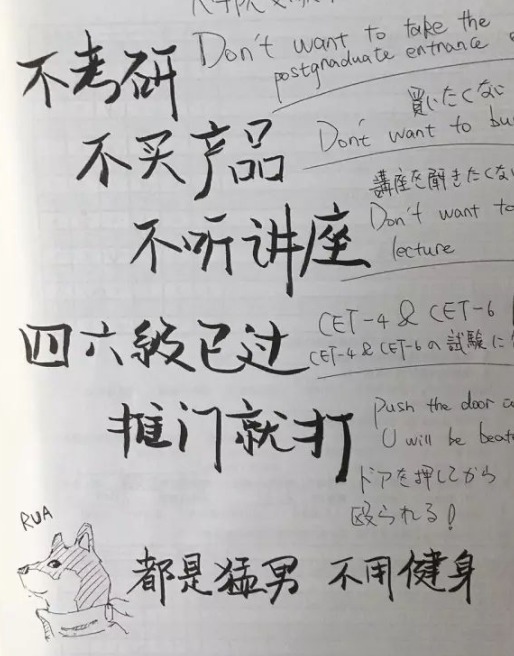 不考研
Don't want to take the
postgraduate entrance
買いたくない
不买产品
Don't want to
講座を聞きたくない
不听讲座
Don't want to
lecture
四六級已过
CET-4 & CET-6
CET-4 & CET-6 の試験に
推门就打
push the door
U will be
ドアを押してから
殴られる!
RUA
都是猛男 不用健身